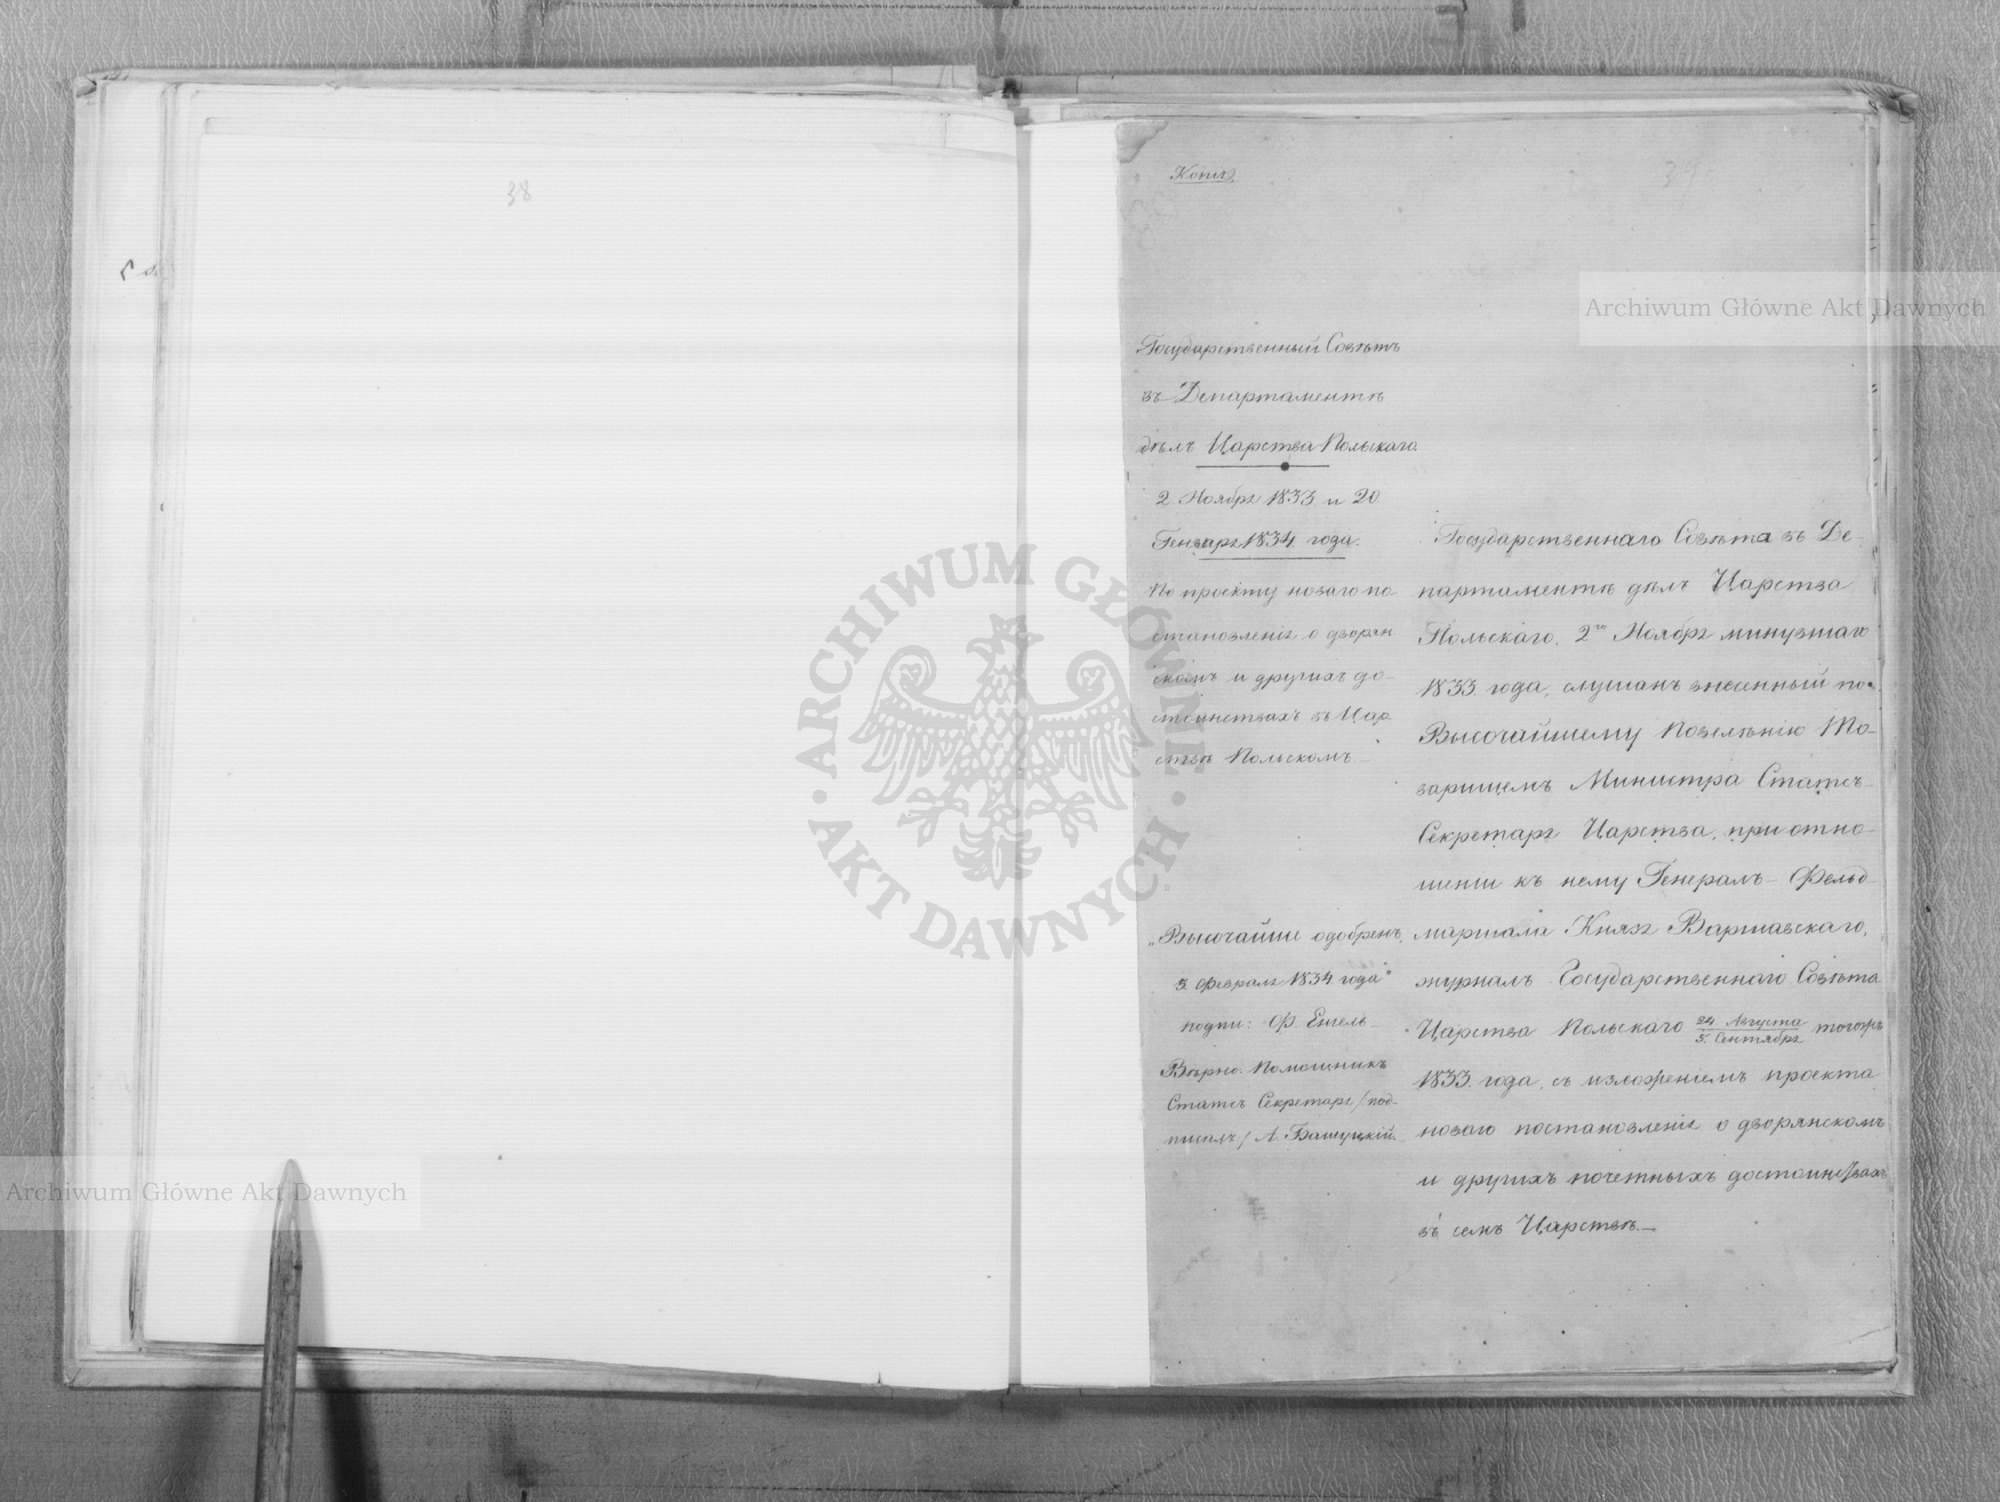 38
Копія.
39
Государственный Совѣтъ
въ Департаментѣ
дѣлъ Царства Польскаго.
2. Ноября 1833 и 20
Генваря 1834 года.
По проекту новаго по-
становленія о дворян
скомъ и другихъ до-
стоинствахъ въ Цар
ствѣ Польскомъ.
„Высочайше одобренъ,
3. Февраля 1834 года“
подпи: Ф. Енгель
Вѣрно: Помошникъ
Статсъ Секретаря /под-
писалъ/ А. Башуцкій.
Государственнаго Совѣта въ Де-
партаментѣ дѣлъ Царства
Польскаго, 2го Ноября минувшаго
1833. года, слушанъ внесенный по
Высочайшему Повелѣнію То-
варищемъ Министра Статсъ-
Секретаря Царства, при отно-
шеніи къ нему Генералъ-Фельд
маршала Князя Варшавскаго,
журналъ Государственнаго Совѣта
Царства Польскаго 24 Августа / 5 Сентября тогожъ
1833. года, съ изложеніемъ проекта
новаго постановленія о дворянскомъ
и другихъ почетныхъ достоинствахъ
въ семъ Царствѣ.—
Archiwum Główne Akt Dawnych
ARCHIWUM GŁÓWNE
AKT DAWNYCH
Archiwum Główne Akt Dawnych